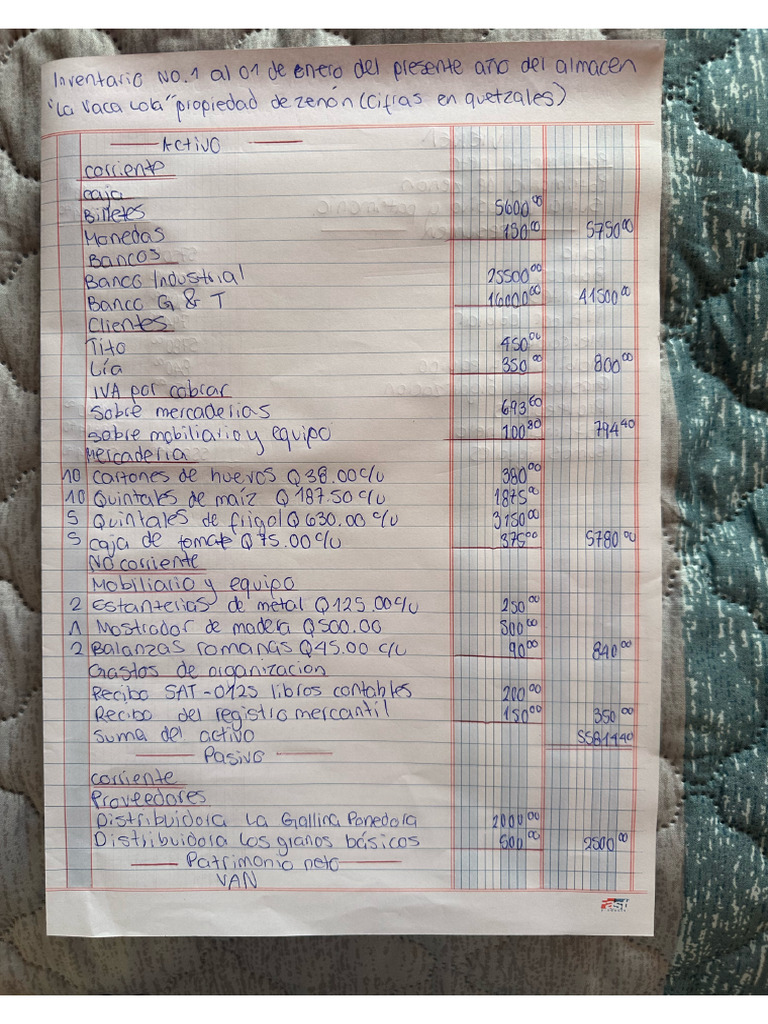 Inventario No.1 al 01 de enero del presente año del almacen
"La vaca Lola" propiedad de zenón (cifras en quetzales)
Activo
corriente
caja
Billetes 5600.00
Monedas 150.00 5750.00
Bancos
Banco Industrial 25500.00
Banco G & T 16000.00 41500.00
Clientes
Tito 450.00
Lía 350.00 800.00
IVA por cobrar
Sobre mercaderias 693.60
sobre mobiliario y equipo 100.80 794.40
Mercaderia
10 cartones de huevos Q 38.00 c/u 380.00
10 Quintales de maíz Q 187.50 c/u 1875.00
5 Quintales de frigol Q 630.00 c/u 3150.00
5 caja de tomate Q 75.00 c/u 375.00 5780.00
No corriente
Mobiliario y equipo
2 Estanterias de metal Q 125.00 c/u 250.00
1 Mostrador de madera Q 500.00 500.00
2 Balanzas romanas Q 45.00 c/u 90.00 840.00
Gastos de organizacion
Recibo SAT-0125 libros contables 200.00
Recibo del registro mercantil 150.00 350.00
Suma del activo 55814.40
Pasivo
corriente
Proveedores
Distribuidora La Gallina Ponedora 2000.00
Distribuidora Los granos básicos 500.00 2500.00
Patrimonio neto
VAN